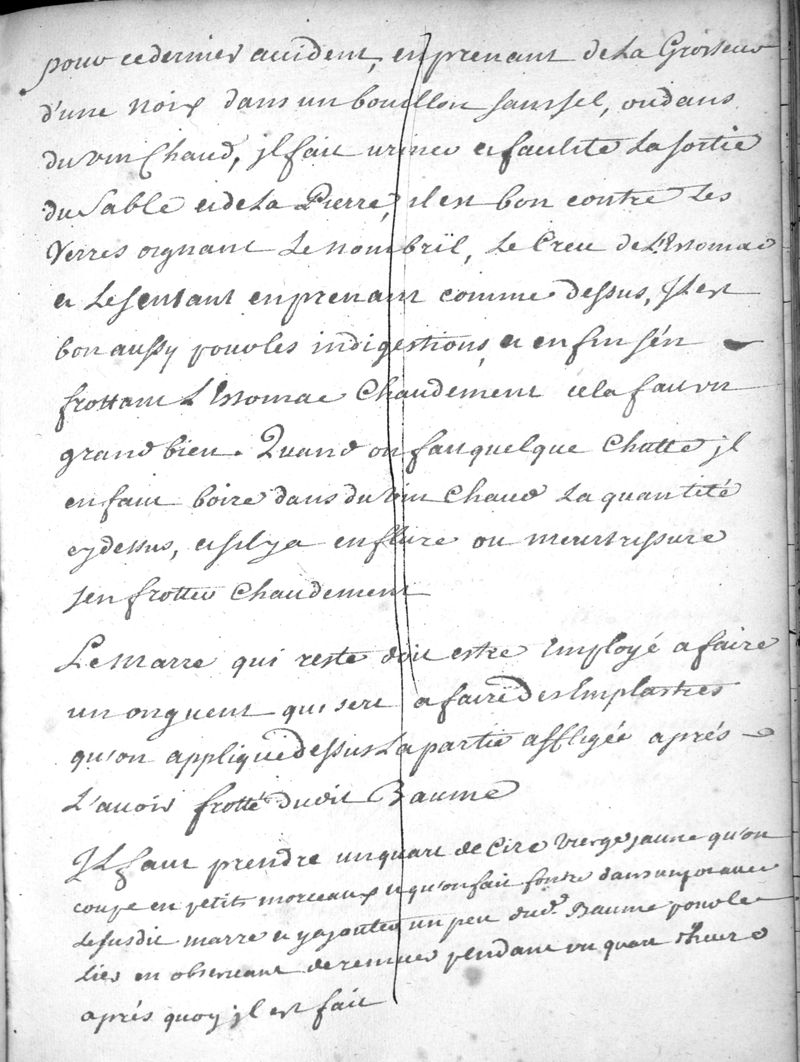 pour ce dernier accident, en prenant de La Grosseur
d'une noix dans un bouillon sans sel, ou dans
du vin Chaud, jl fait uriner et facilite La sortie
du Sable et de La Pierre, il est bon contre Les
Verres oignant Le nombril, Le Creu de L'Estomac
et Le sentant en prenant comme dessus, JL est
bon aussy pour les indigestions, et enfin s'én
frottant L'Estomac Chaudement cela fait un
grand bien. Quand on fait quelque Chutte, jl
en faut boire dans du vin Chaud La quantité
cy dessus, et s'il y a enflure ou meurtrissure
s'en frotter Chaudement
Le Marre qui reste doit estre Employé a faire
un onguent qui sert a faire des Emplastres
qu'on applique dessus La partie affligée aprés
L'avoir frotté dudit Baume
JL faut prendre un quart de Cire Vierge jaune qu'on
coupe en petits morceaux et qu'on fait fondre dans un pot avec
Le susdit marre et y ajouter un peu dud. Baume pour le
lier en observant de remuer pendant un quart d'heure
aprés quoy jl est fait